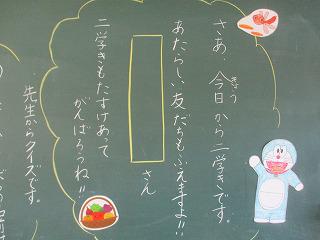 さあ、今日から二学きです。
きょう
あたらしい友だちもふえますよ!!
さん
二学きもたすけあって
がんばろうね!!
先生からクイズです。